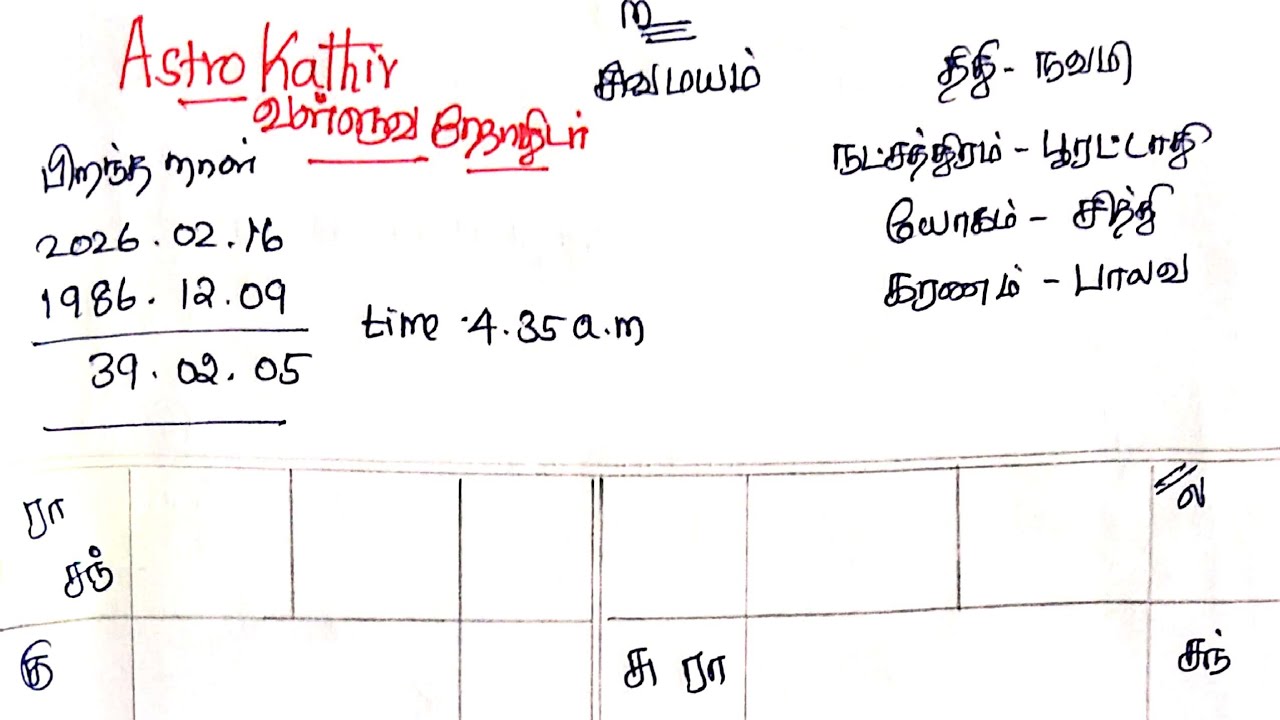 உ
சிவமயம்
Astro Kathir
வள்ளுவ ஜோதிடர்
பிறந்த நாள்
2026.02.16
1986.12.09
39.02.05
time .4.35 a.m
திதி - நவமி
நட்சத்திரம் - பூரட்டாதி
யோகம் - சித்தி
கரணம் - பாலவ
ரா
சந்
கு
ல
சு ரா
சந்